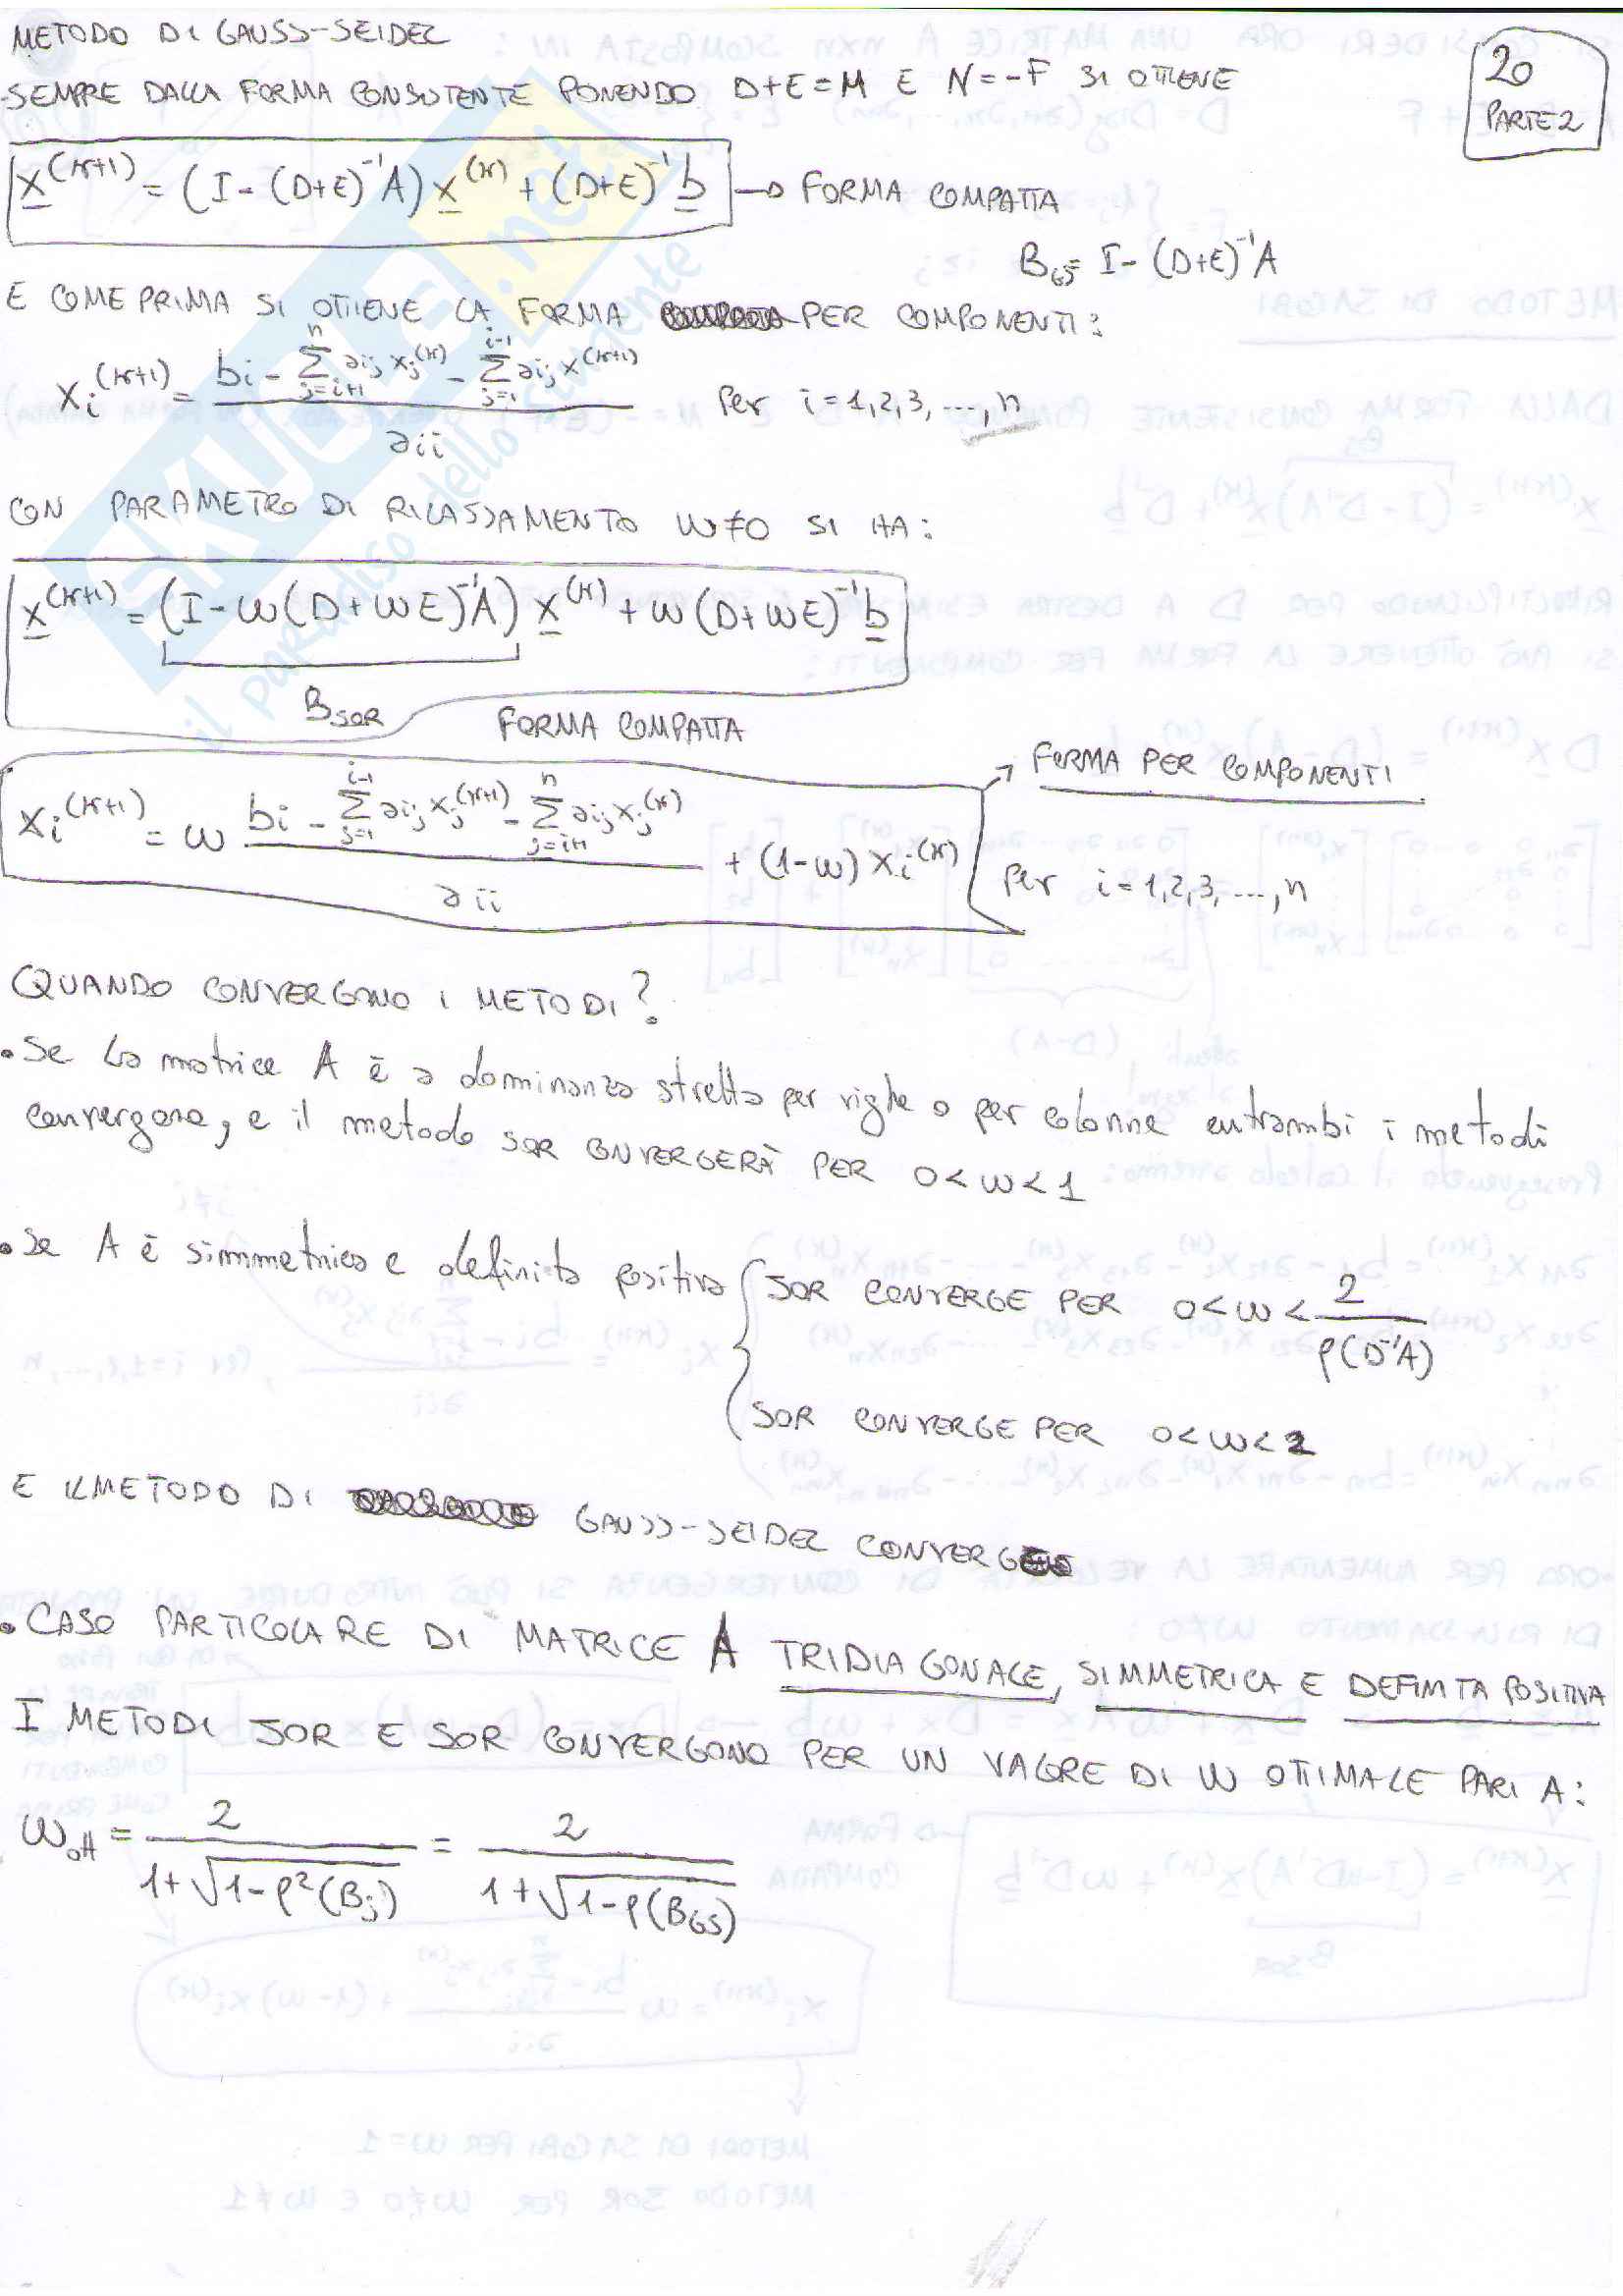 METODO DI GAUSS-SEIDEL
20
PARTE 2
SEMPRE DALLA FORMA CONSISTENTE PONENDO D+E=M E N=-F SI OTTIENE
x^(k+1) = (I-(D+E)^-1 A) x^(k) + (D+E)^-1 b → FORMA COMPATTA
B_GS = I-(D+E)^-1 A
E COME PRIMA SI OTTIENE LA FORMA PER COMPONENTI:
x_i^(k+1) = (b_i - Σ_{j=i+1}^{n} a_ij x_j^(k) - Σ_{j=1}^{i-1} a_ij x^(k+1)) / a_ii per i=1,2,3,...,n
CON PARAMETRO DI RILASSAMENTO ω≠0 SI HA:
x^(k+1) = (I-ω(D+ωE)^-1 A) x^(k) + ω(D+ωE)^-1 b
B_SOR FORMA COMPATTA
x_i^(k+1) = ω (b_i - Σ_{j=1}^{i-1} a_ij x_j^(k+1) - Σ_{j=i+1}^{n} a_ij x_j^(k)) / a_ii + (1-ω) x_i^(k)
→ FORMA PER COMPONENTI
per i=1,2,3,...,n
QUANDO CONVERGONO I METODI?
• Se la matrice A è a dominanza stretta per righe o per colonne entrambi i metodi
convergono, e il metodo SOR CONVERGERÀ PER 0<ω<1
• Se A è simmetrica e definita positiva { JOR CONVERGE PER 0<ω< 2/ρ(D^-1 A)
SOR CONVERGE PER 0<ω<2
E IL METODO DI GAUSS-SEIDEL CONVERGE
• CASO PARTICOLARE DI MATRICE A TRIDIAGONALE, SIMMETRICA E DEFINITA POSITIVA
I METODI JOR E SOR CONVERGONO PER UN VALORE DI ω OTTIMALE PARI A:
ω_ott = 2/(1+√(1-ρ²(B_J))) = 2/(1+√(1-ρ(B_GS)))
SKUOLA.net
il paradiso dello studente